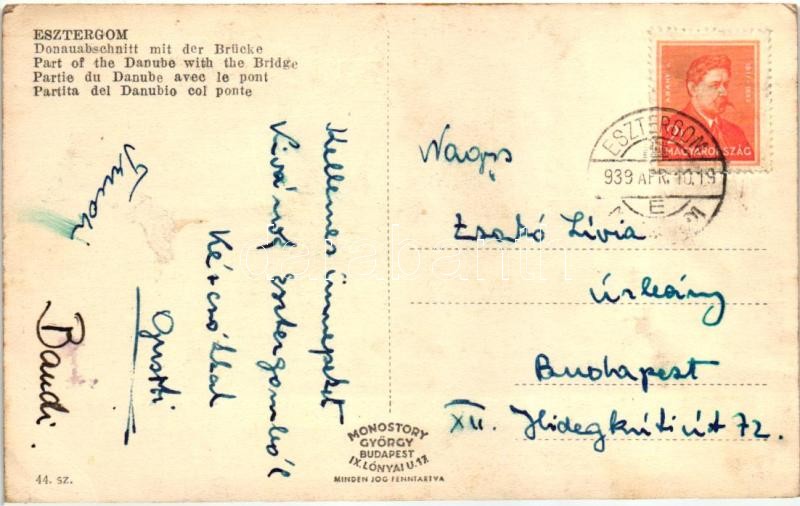 ESZTERGOM
Donauabschnitt mit der Brücke
Part of the Danube with the Bridge
Partie du Danube avec le pont
Partita del Danubio col ponte
Kellemes ünnepeket
Kívánok Esztergomból
Kézcsókkal
Guszti
Bandi.
44. sz.
MONOSTORY
GYÖRGY
BUDAPEST
IX. LÓNYAI U. 17
MINDEN JOG FENNTARTVA
ARANY J.
MAGYARORSZÁG
ESZTERGOM
939 APR. 10. 19
E
Nagys
Zsakó Lívia
Úrleány
Budapest
XII. Hidegkúti út 72.